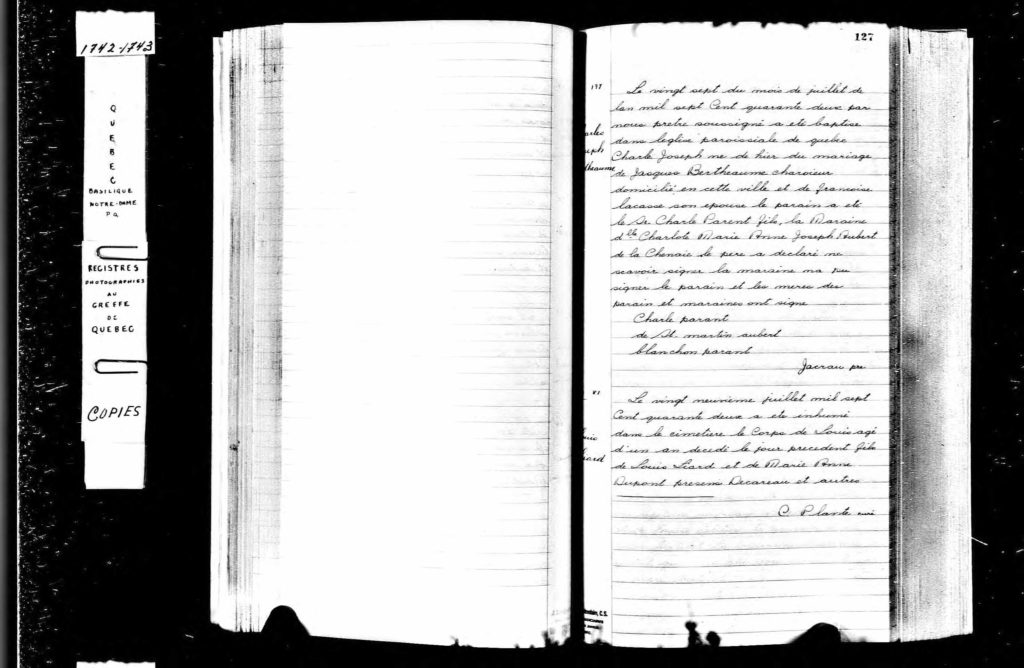 1742-1743
QUEBEC
BASILIQUE
NOTRE-DAME
P.Q.
REGISTRES
PHOTOGRAPHIES
AU
GREFFE
DE
QUEBEC
COPIES
127
Le vingt sept du mois de juillet de
lan mil sept Cent quarante deux par
nous pretre soussigné a ete baptise
dans leglise paroissiale de quebec
Charle Joseph ne de hier du mariage
de Jacques Bertheaume charoieur
domicilié en cette ville et de francoise
lacasse son epouse le parain a ete
le Sr. Charle Parent fils, la Maraine
dlle Charlote Marie Anne Joseph Aubert
de la Chenaie le pere a declaré ne
scavoir signer la maraine na pu
signer le parain et les meres des
parain et maraines ont signe
Charle parant
de St. martin aubert
blanchon parant
Jacrau pre
Le vingt neuvieme juillet mil sept
Cent quarante deux a ete enhumé
dans le cimetiere le Corps de Louis agé
d'un an decedé le jour precedent fils
de Louis Liard et de Marie Anne
Dupont presens Decareau et autres
C. Plante curé